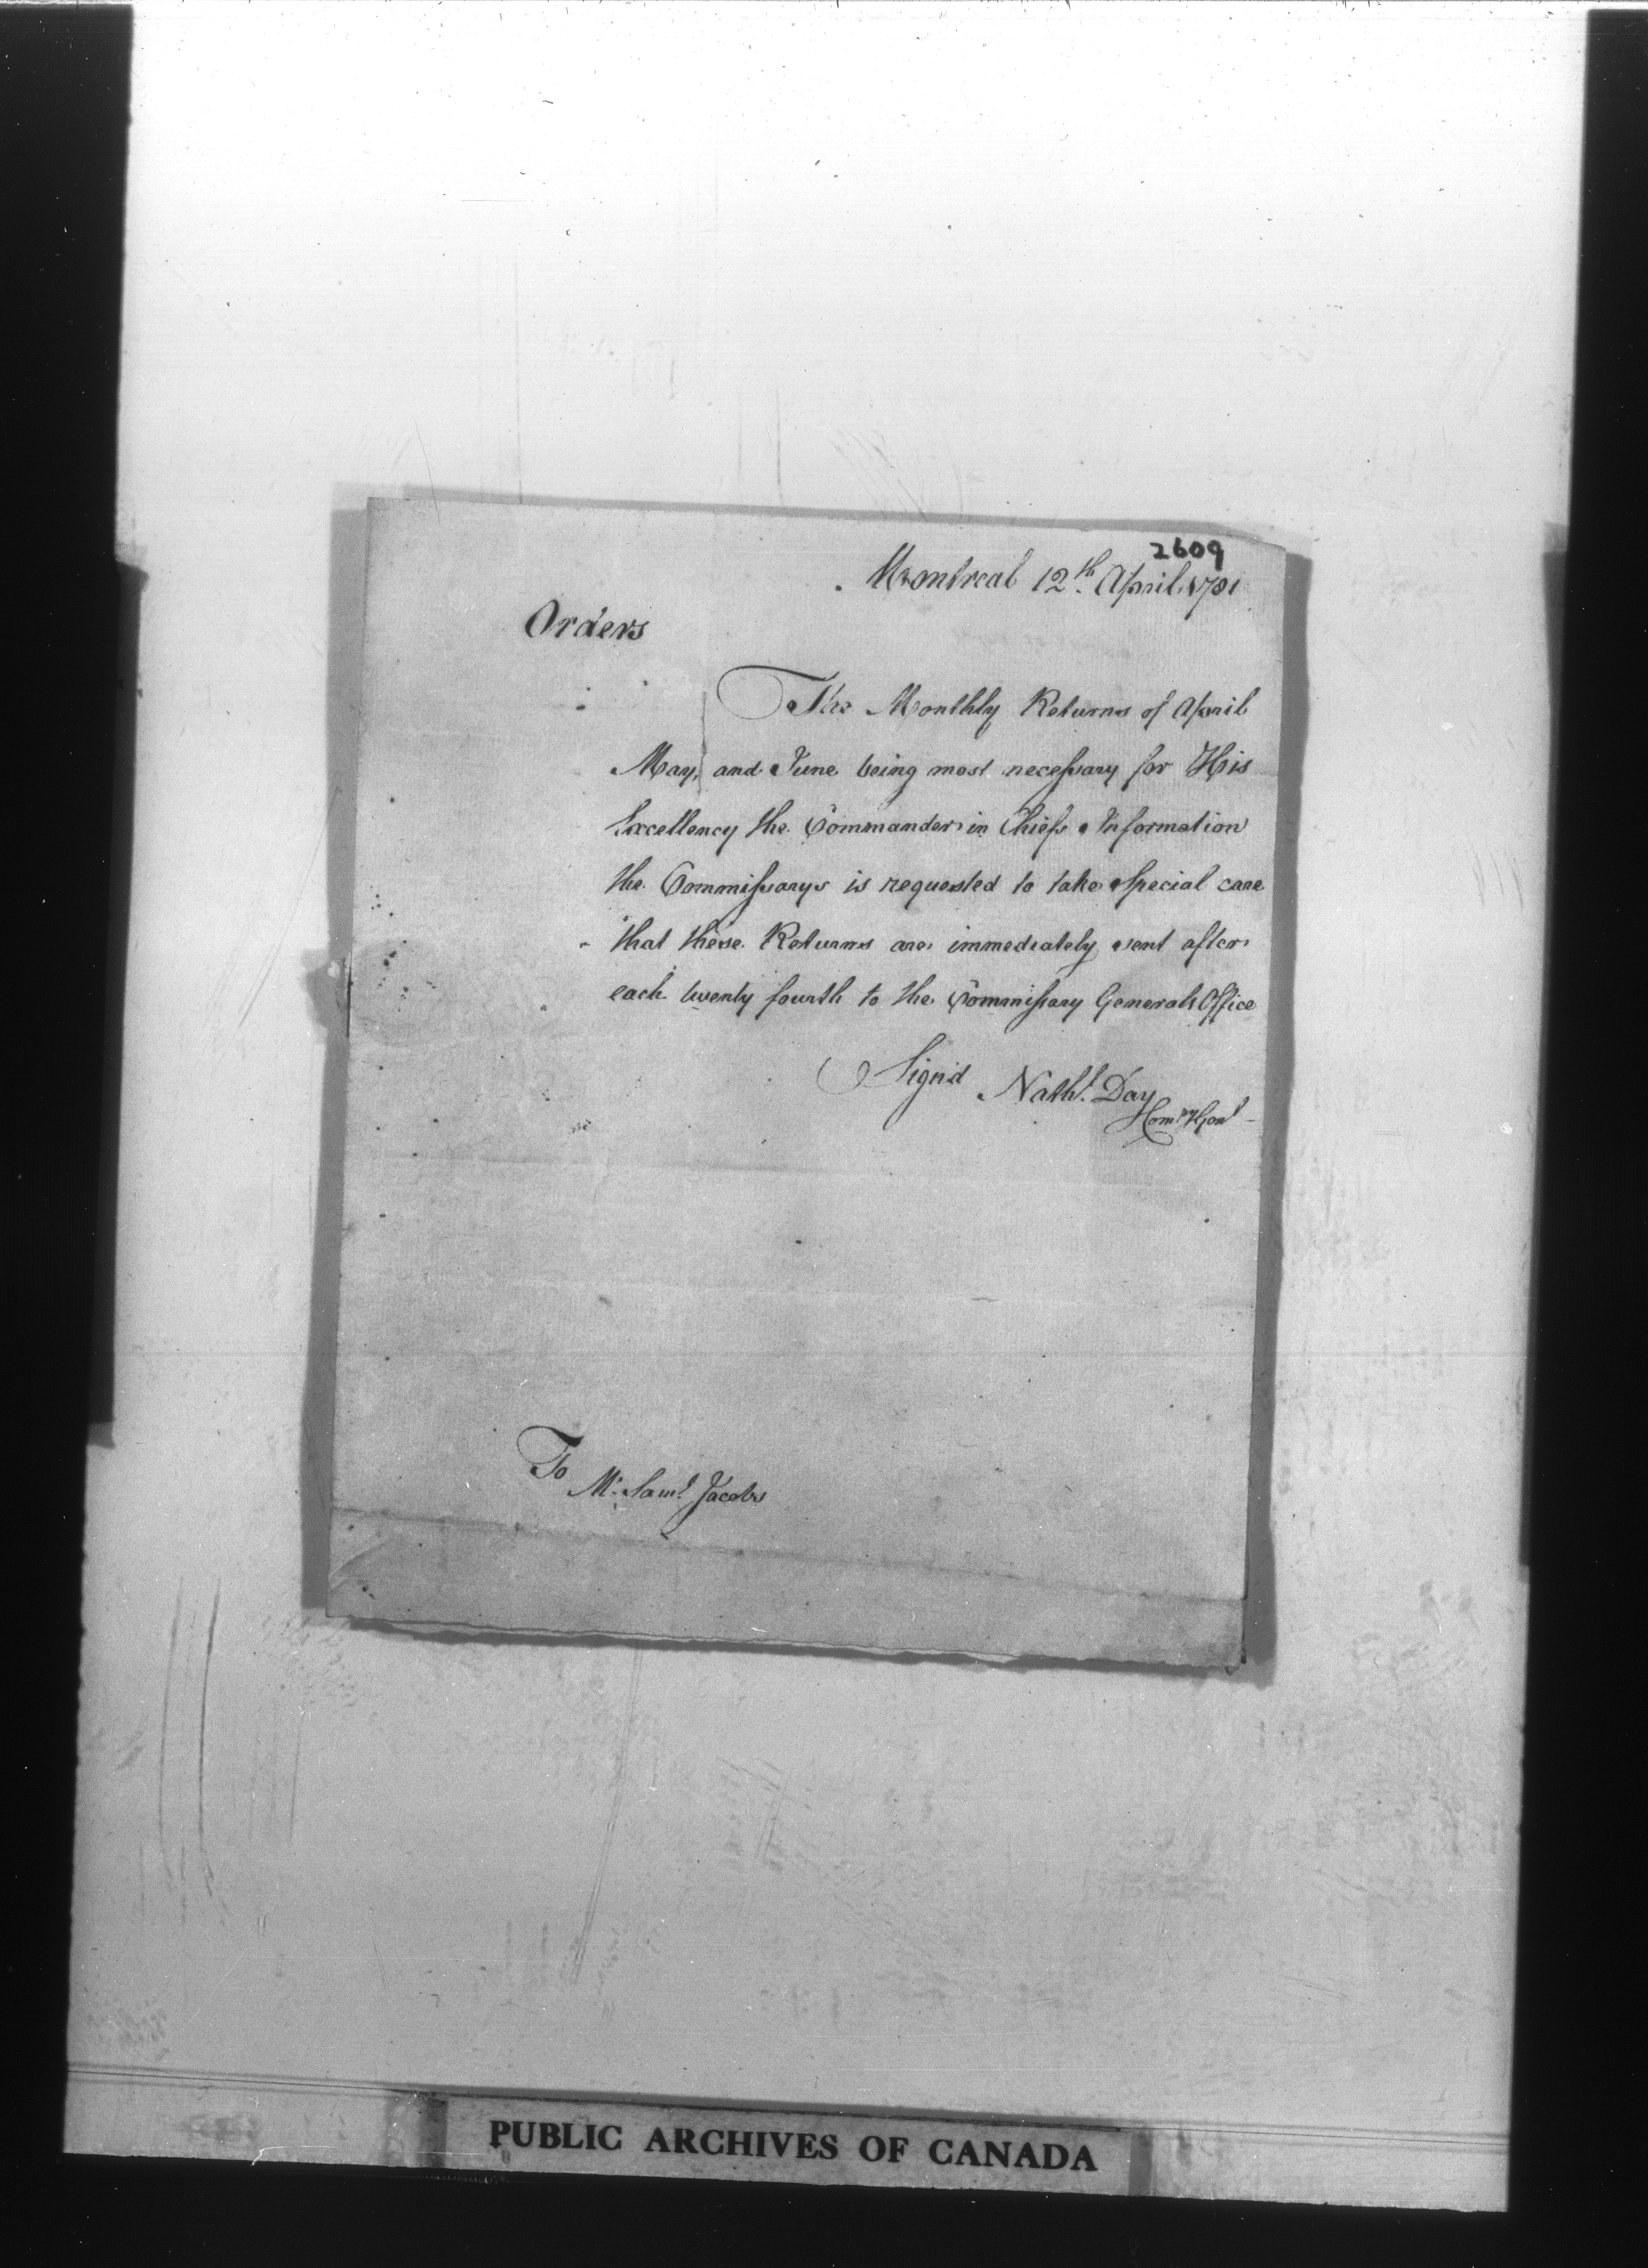 2609
Montreal 12th. April 1781
Orders
The Monthly Returns of April
May, and June being most necessary for His
Excellency the Commander in Chiefs Information
the Commissarys is requested to take special care
that these Returns are immediately sent after
each twenty fourth to the Commissary Generals Office
Sign'd Nathl. Day
Comry Genl
To
Mr. Saml. Jacobs
PUBLIC ARCHIVES OF CANADA